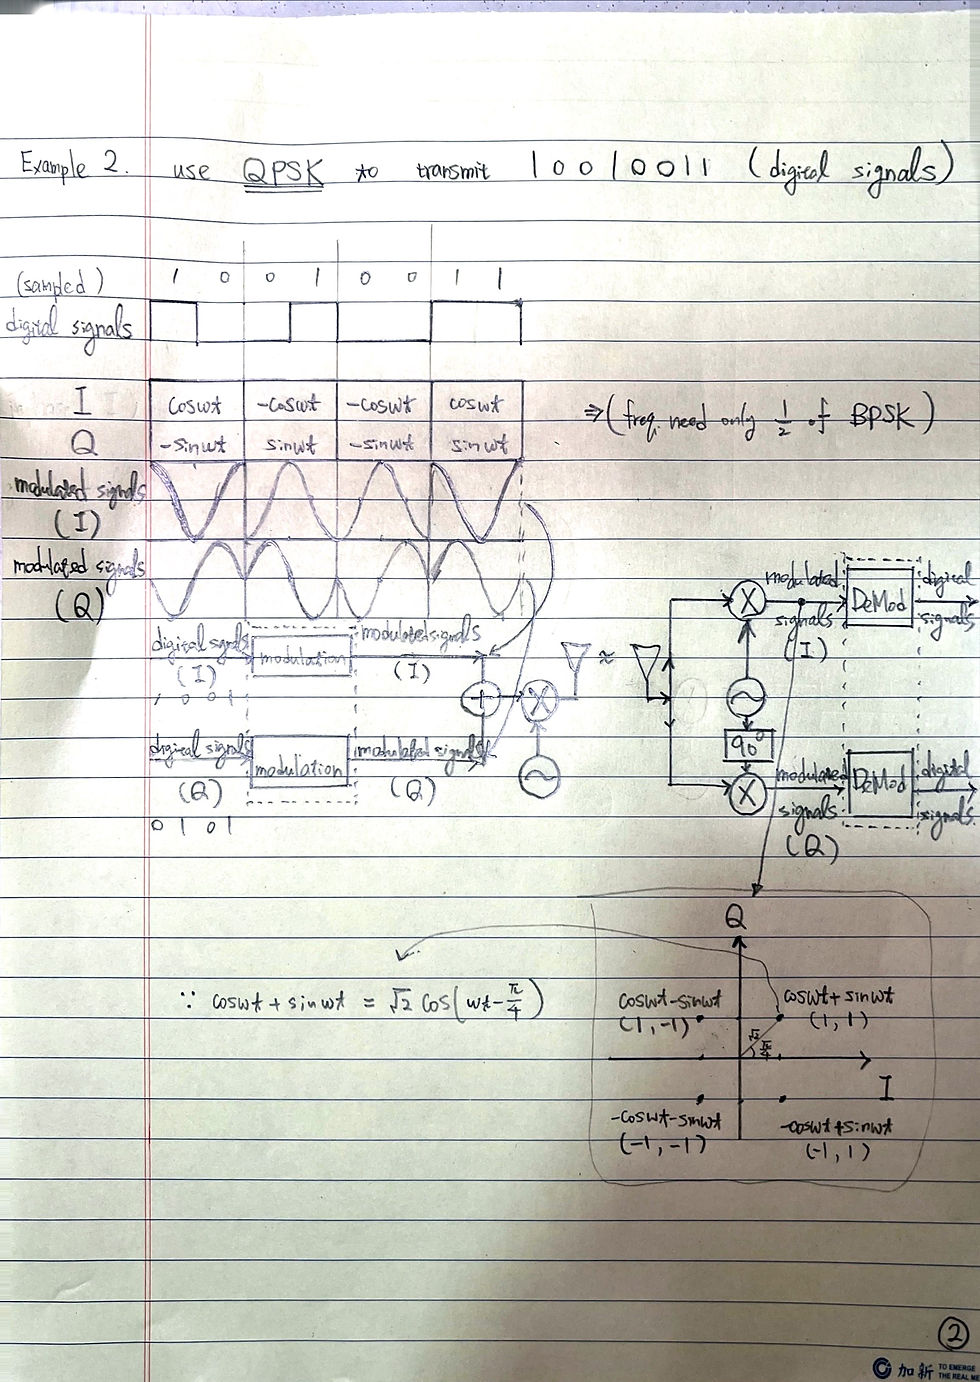 Example 2. use QPSK to transmit 10010011 (digital signals)
(sampled) 1 0 0 1 0 0 1 1
digital signals
I coswt -coswt -coswt coswt
⇒ (freq. need only 1/2 of BPSK)
Q -sinwt sinwt -sinwt sinwt
modulated signals
(I)
modulated signals
(Q)
digital signals
(I)
1 0 0 1
modulation
modulated signals
(I)
+
X
~
≈
digital signals
(Q)
0 1 0 1
modulation
modulated signals
(Q)
X
modulated
signals
(I)
DeMod
digital
signals
~
90°
X
modulated
signals
(Q)
DeMod
digital
signals
Q
∵ coswt + sinwt = √2 cos(wt - π/4)
coswt-sinwt
(1, -1)
coswt+sinwt
(1, 1)
√2
π/4
I
-coswt-sinwt
(-1, -1)
-coswt+sinwt
(-1, 1)
2
加新 TO EMERGE
THE REAL ME